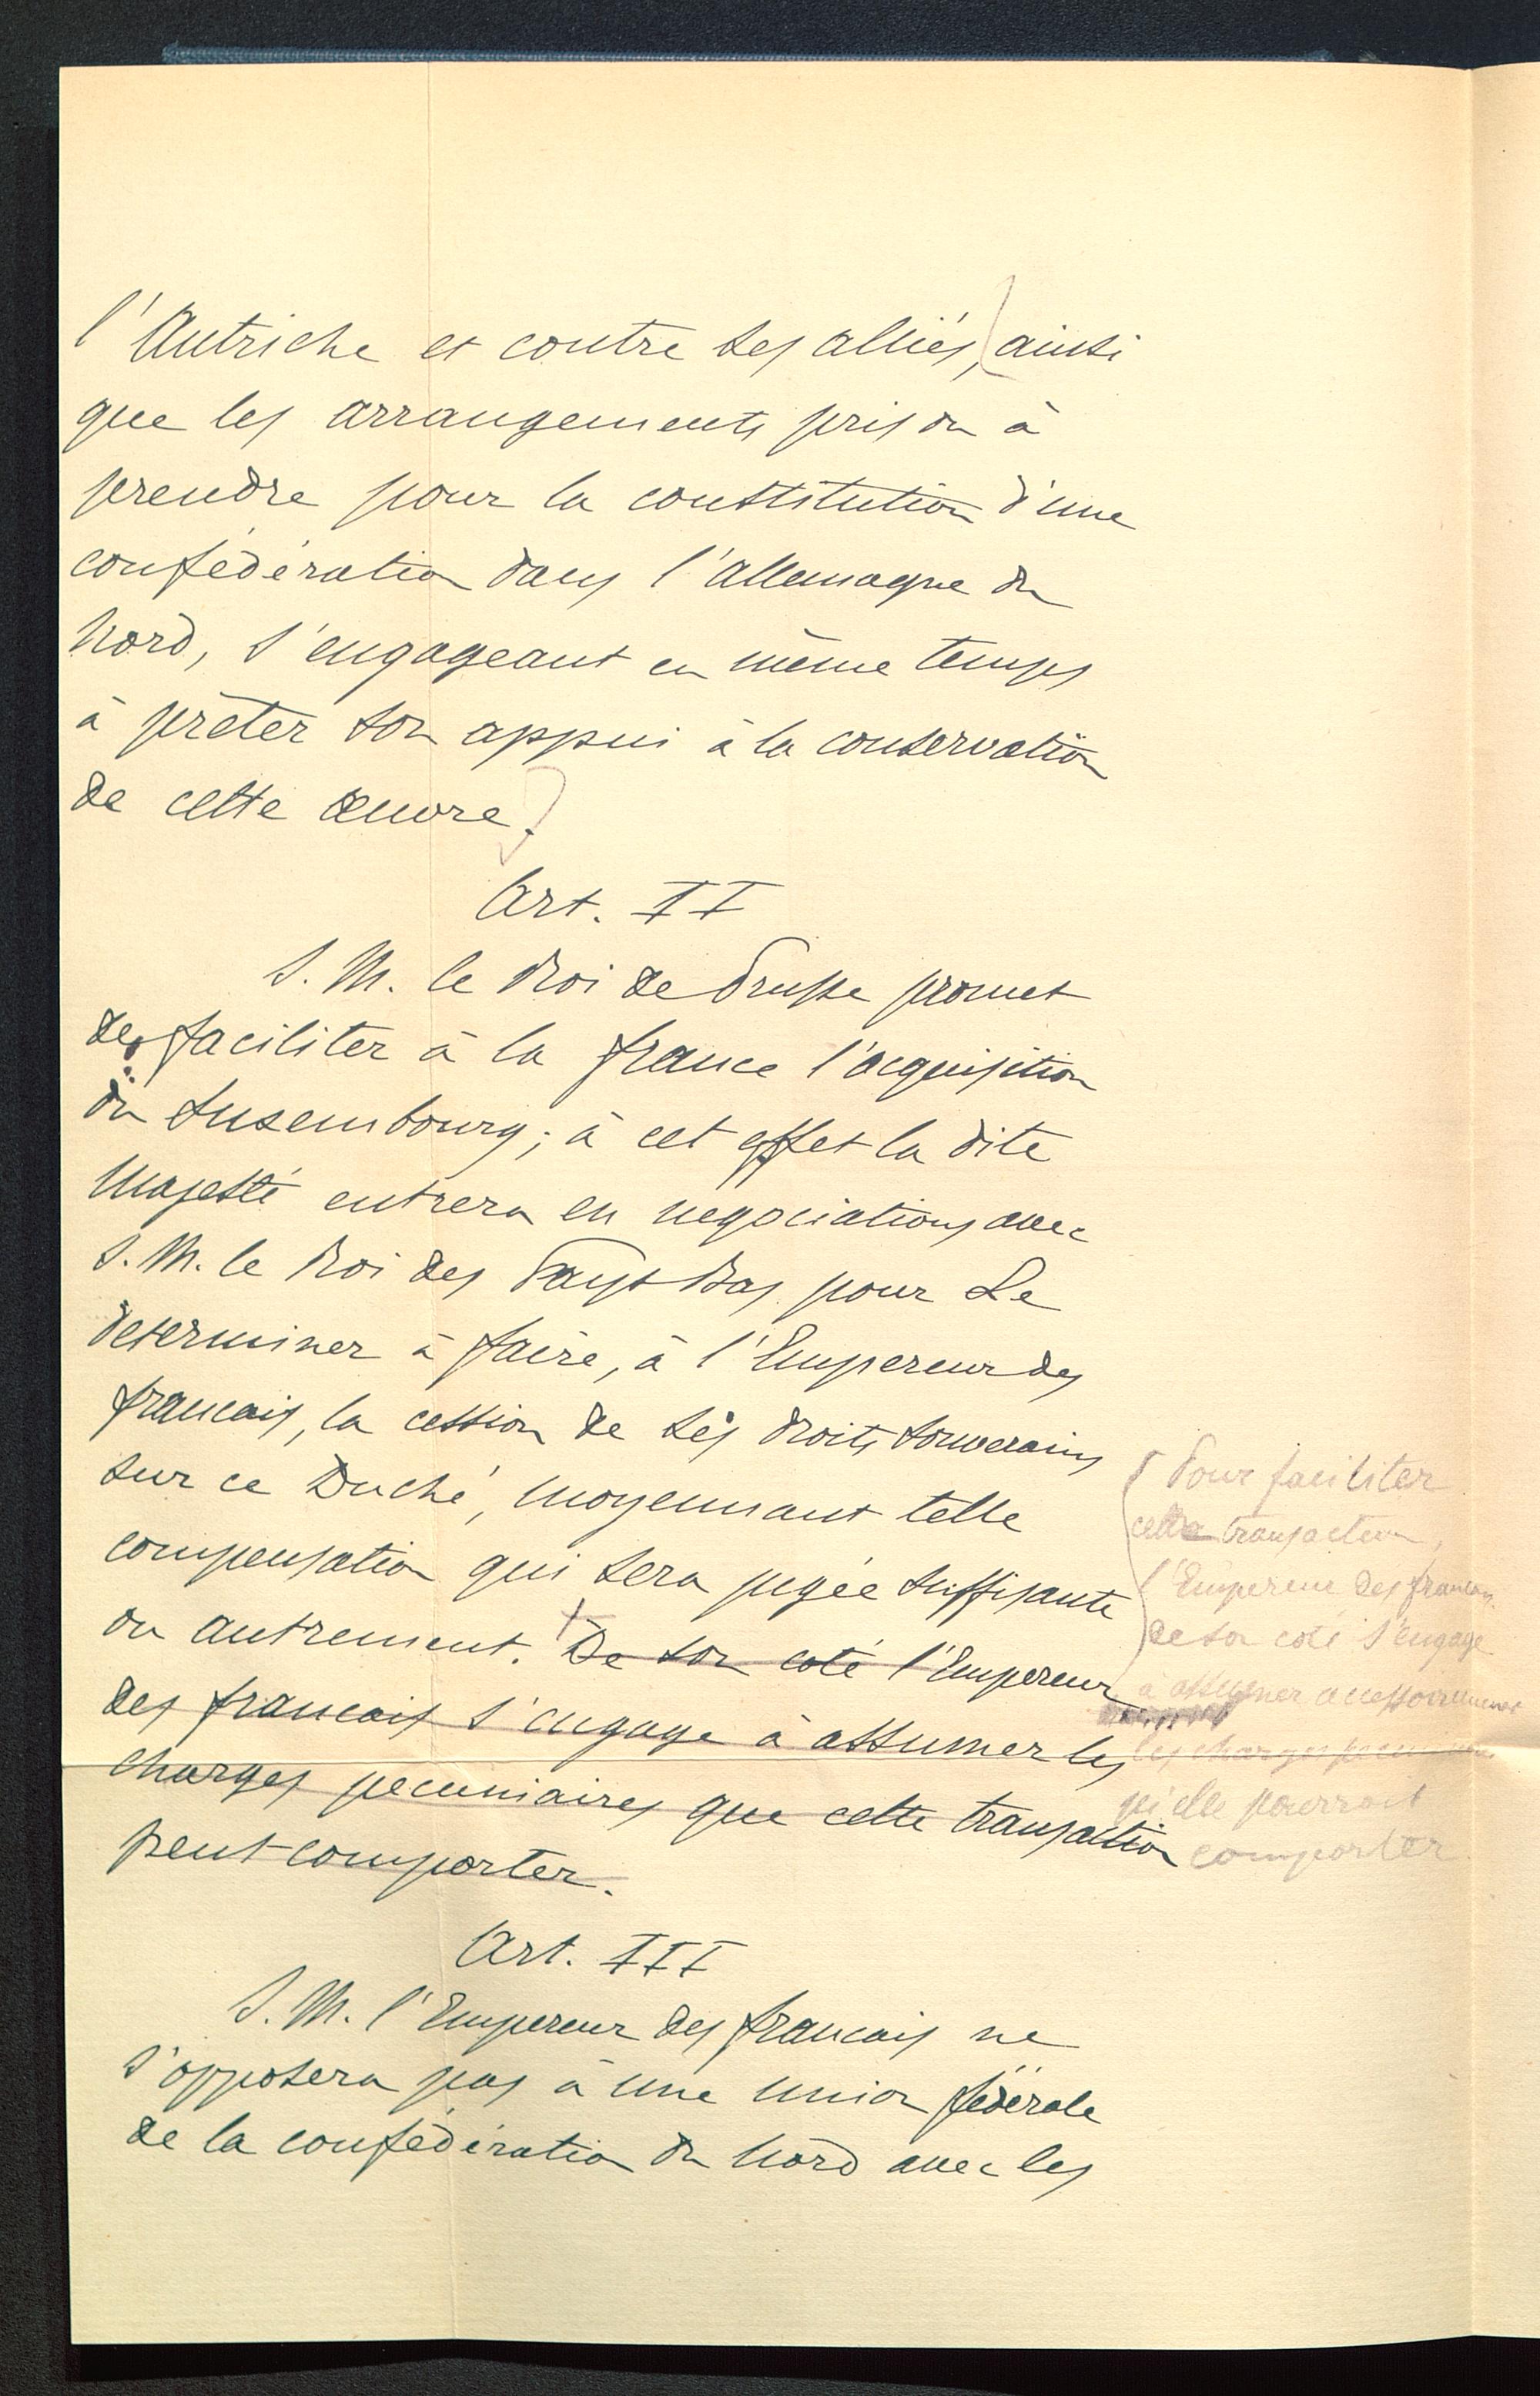 l'Autriche et contre ses alliés, ainsi
que les arrangements pris ou à
prendre pour la constitution d'une
confédération dans l'Allemagne du
Nord, s'engageant en même temps
à prêter son appui à la conservation
de cette œuvre.
Art. II
S. M. le Roi de Prusse promet
de faciliter à la france l'acquisition
du Luxembourg; à cet effet la dite
Majesté entrera en négociations avec
S. M. le Roi des Pays-Bas pour Le
determiner à faire, à l'Empereur des
francais, la cession de ses droits souverains
sur ce Duché, moyennant telle
compensation qui sera jugée suffisante
ou autrement. De son coté l'Empereur
des francais s'engage à assumer les
charges pecuniaires que cette transaction
peut comporter.
Pour faciliter
cette transaction,
l'Empereur des francais,
de son coté s'engage
à assumer accessoirement
les charges pecuniaires
qu'elle pourrait
comporter
Art. III
S. M. l'Empereur des francais ne
s'opposera pas à une union fédérale
de la confédération du Nord avec les